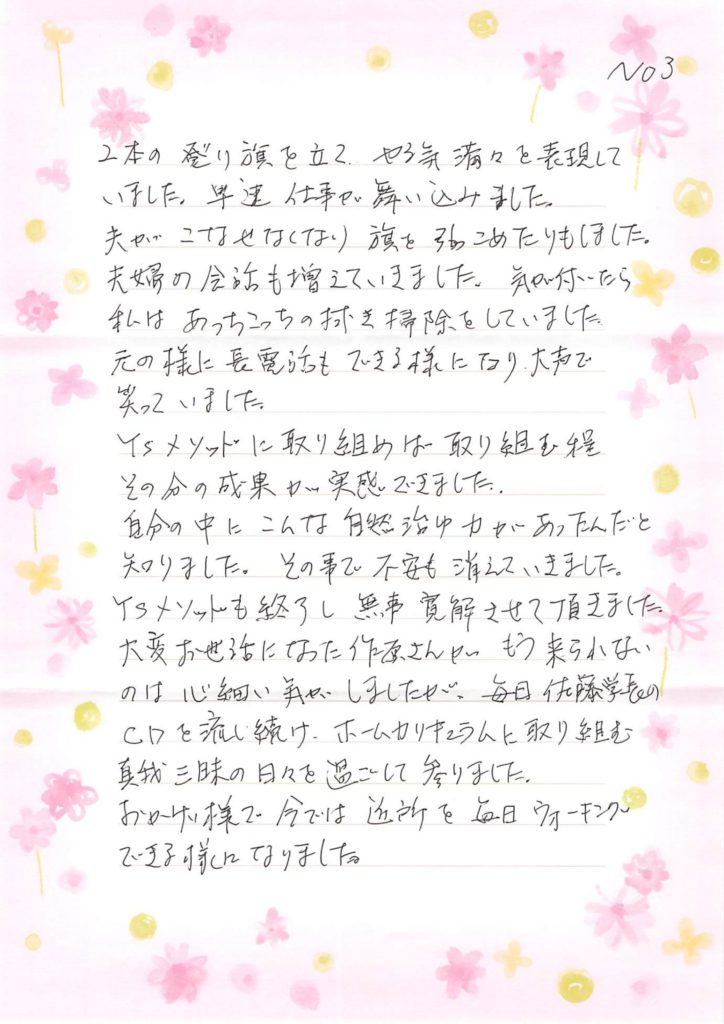 No 3
2本の登り旗を立て、やる気満々を表現して
いました。早速仕事が舞い込みました。
夫がこなせなくなり旗を引っこめたりもしました。
夫婦の会話も増えていきました。気が付いたら
私はあっちこっちの拭き掃除をしていました
元の様に長電話もできる様になり、大声で
笑っていました。
YSメソッドに取り組めば取り組む程
その分の成果が実感できました。
自分の中にこんな自然治ゆ力があったんだと
知りました。その事で不安も消えていきました。
YSメソッドも終了し無事寛解させて頂きました。
大変お世話になった作原さんがもう来られない
のは心細い気がしましたが、毎日佐藤学長の
CDを流し続け、ホームカリキュラムに取り組む
真我三昧の日々を過ごして参りました。
おかげ様で今では近所を毎日ウォーキング
できる様になりました。